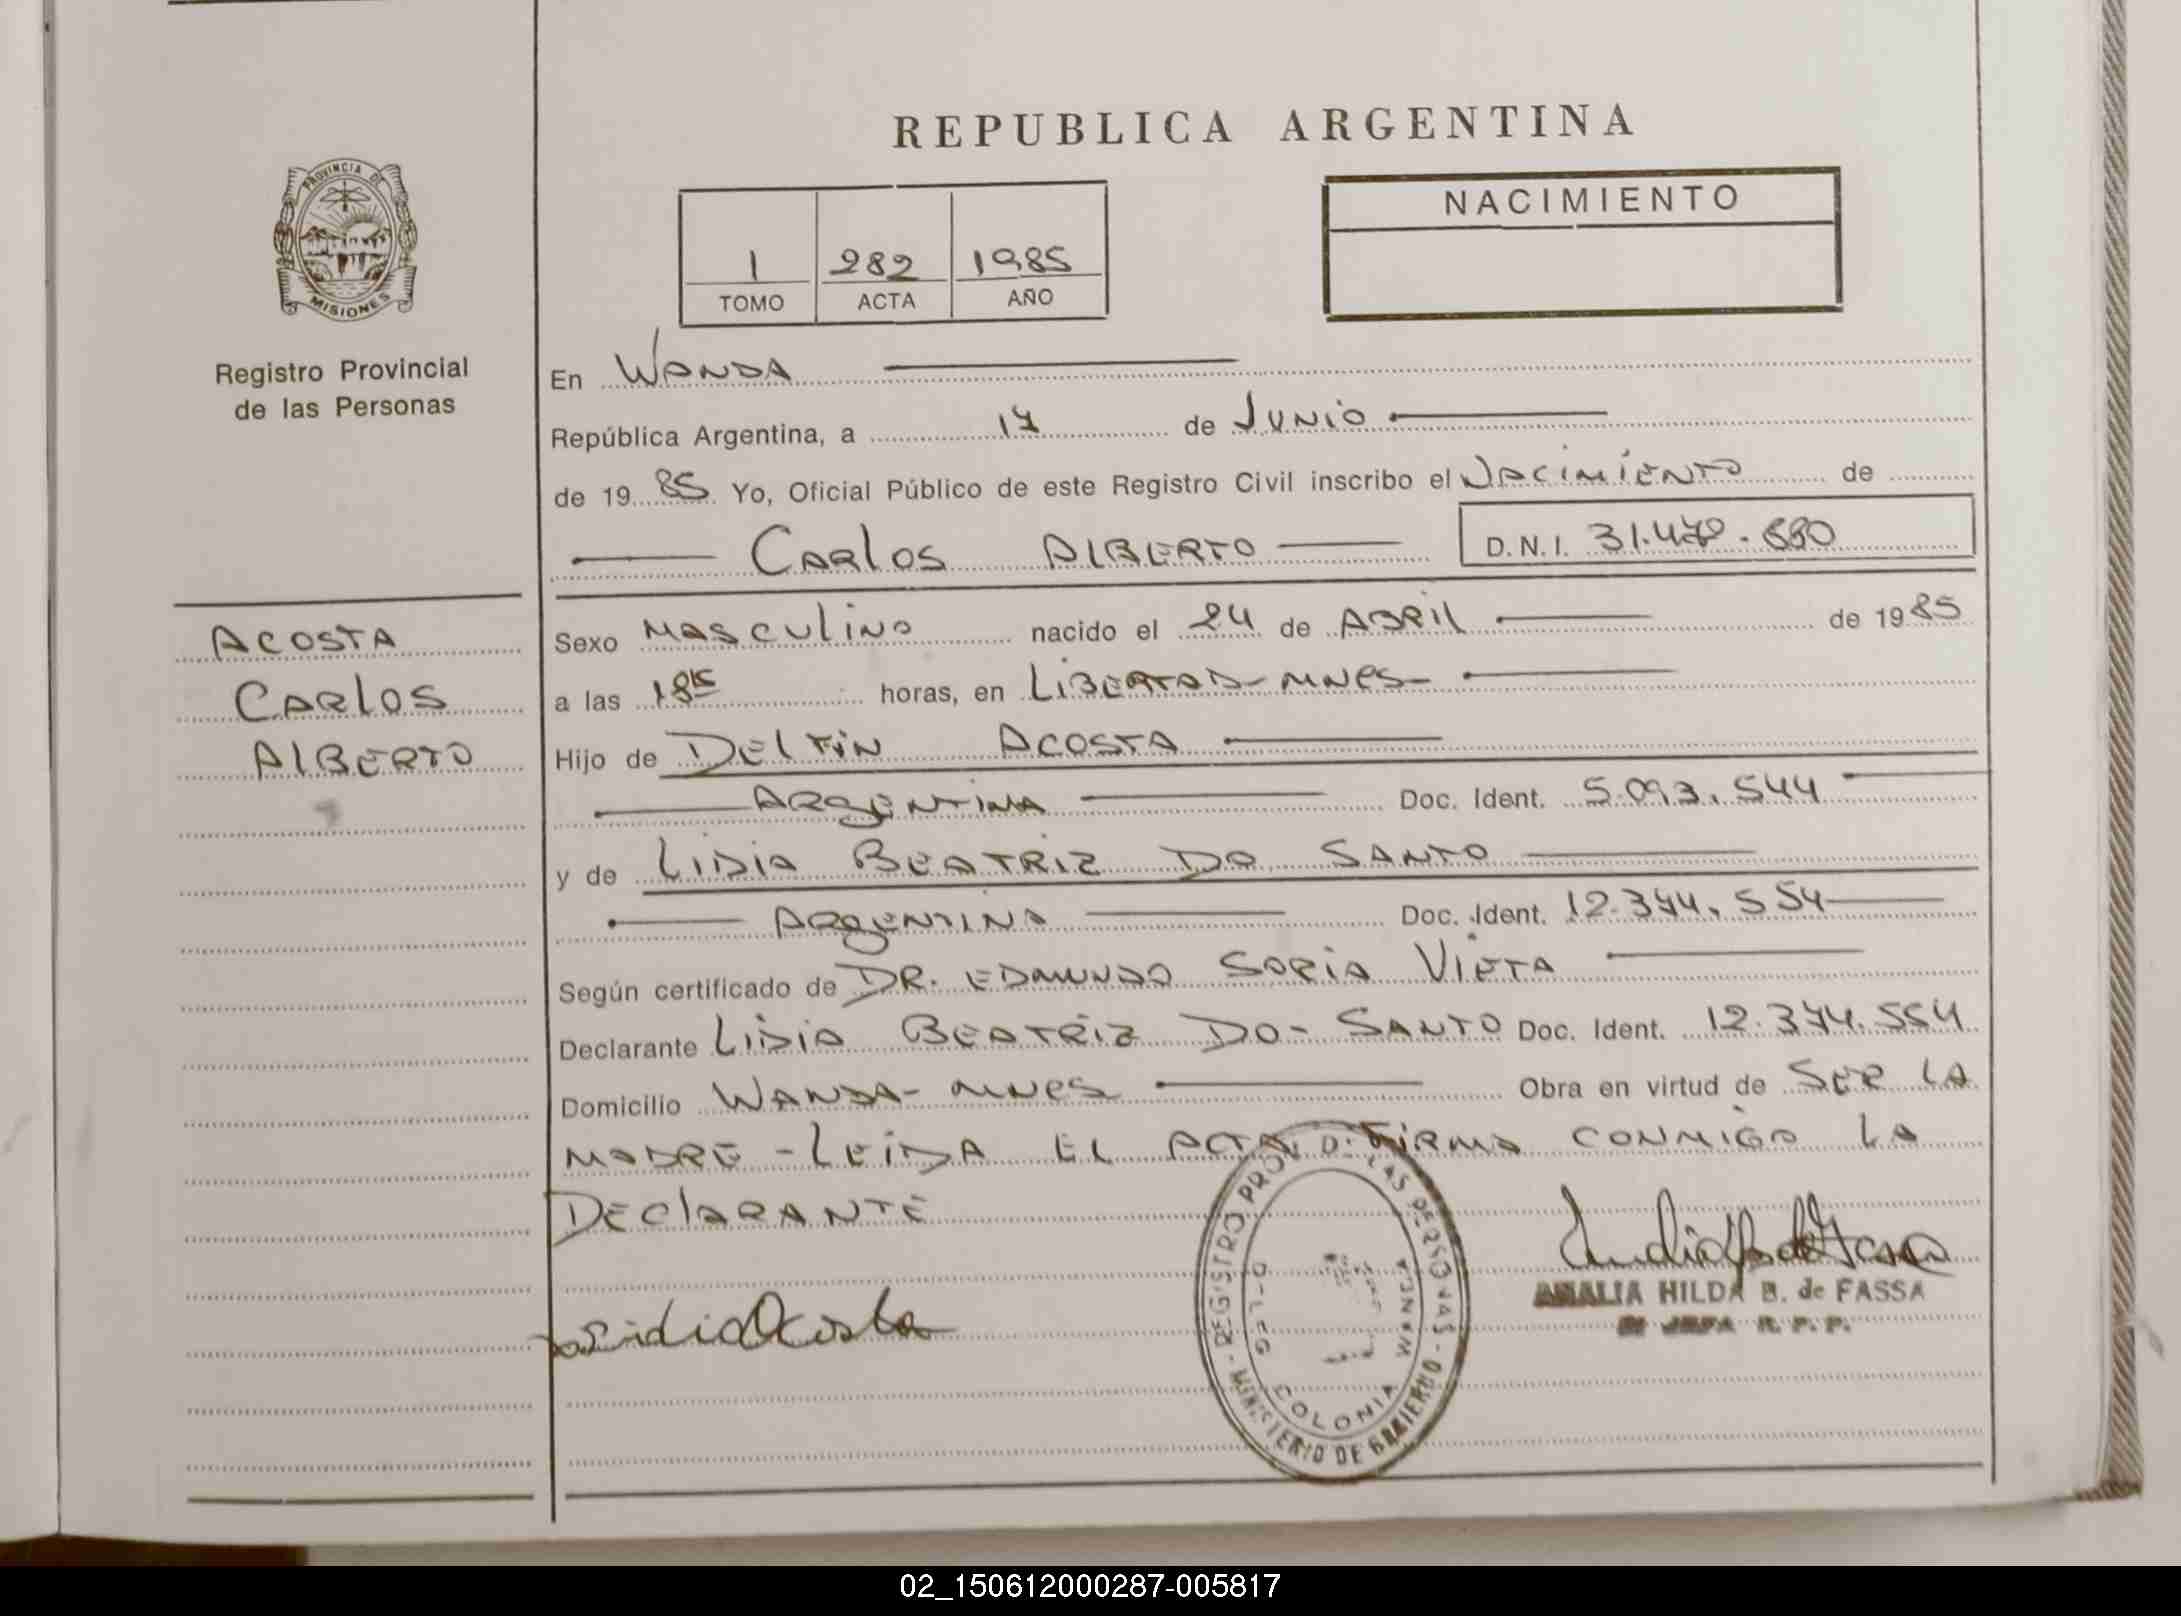 REPUBLICA ARGENTINA
PROVINCIA DE
MISIONES
Registro Provincial
de las Personas
1 282 1985
TOMO ACTA AÑO
NACIMIENTO
En WANDA
República Argentina, a 17 de JUNIO
de 1985 Yo, Oficial Público de este Registro Civil inscribo el NACIMIENTO de
CARLOS ALBERTO D.N.I.
ACOSTA
CARLOS
ALBERTO
Sexo MASCULINO nacido el 24 de ABRIL de 1985
a las 18 horas, en LIBERTAD-MNES-
Hijo de DELFIN ACOSTA
ARGENTINA Doc. Ident. 5.093.544
y de LIDIA BEATRIZ DO SANTO
ARGENTINA Doc. Ident. 12.374.554
Según certificado de DR. EDMUNDO SORIA VIETA
Declarante LIDIA BEATRIZ DO-SANTO Doc. Ident. 12.374.554
Domicilio WANDA-MNES Obra en virtud de SER LA
MADRE-LEIDA EL ACTA FIRMA CONMIGO LA
DECLARANTE
Lidia Acosta
REGISTRO PROV. DE LAS PERSONAS - MINISTERIO DE GOBIERNO
COLONIA WANDA
AMALIA HILDA B. de FASSA
JEFA R. P. P.
02_150612000287-005817